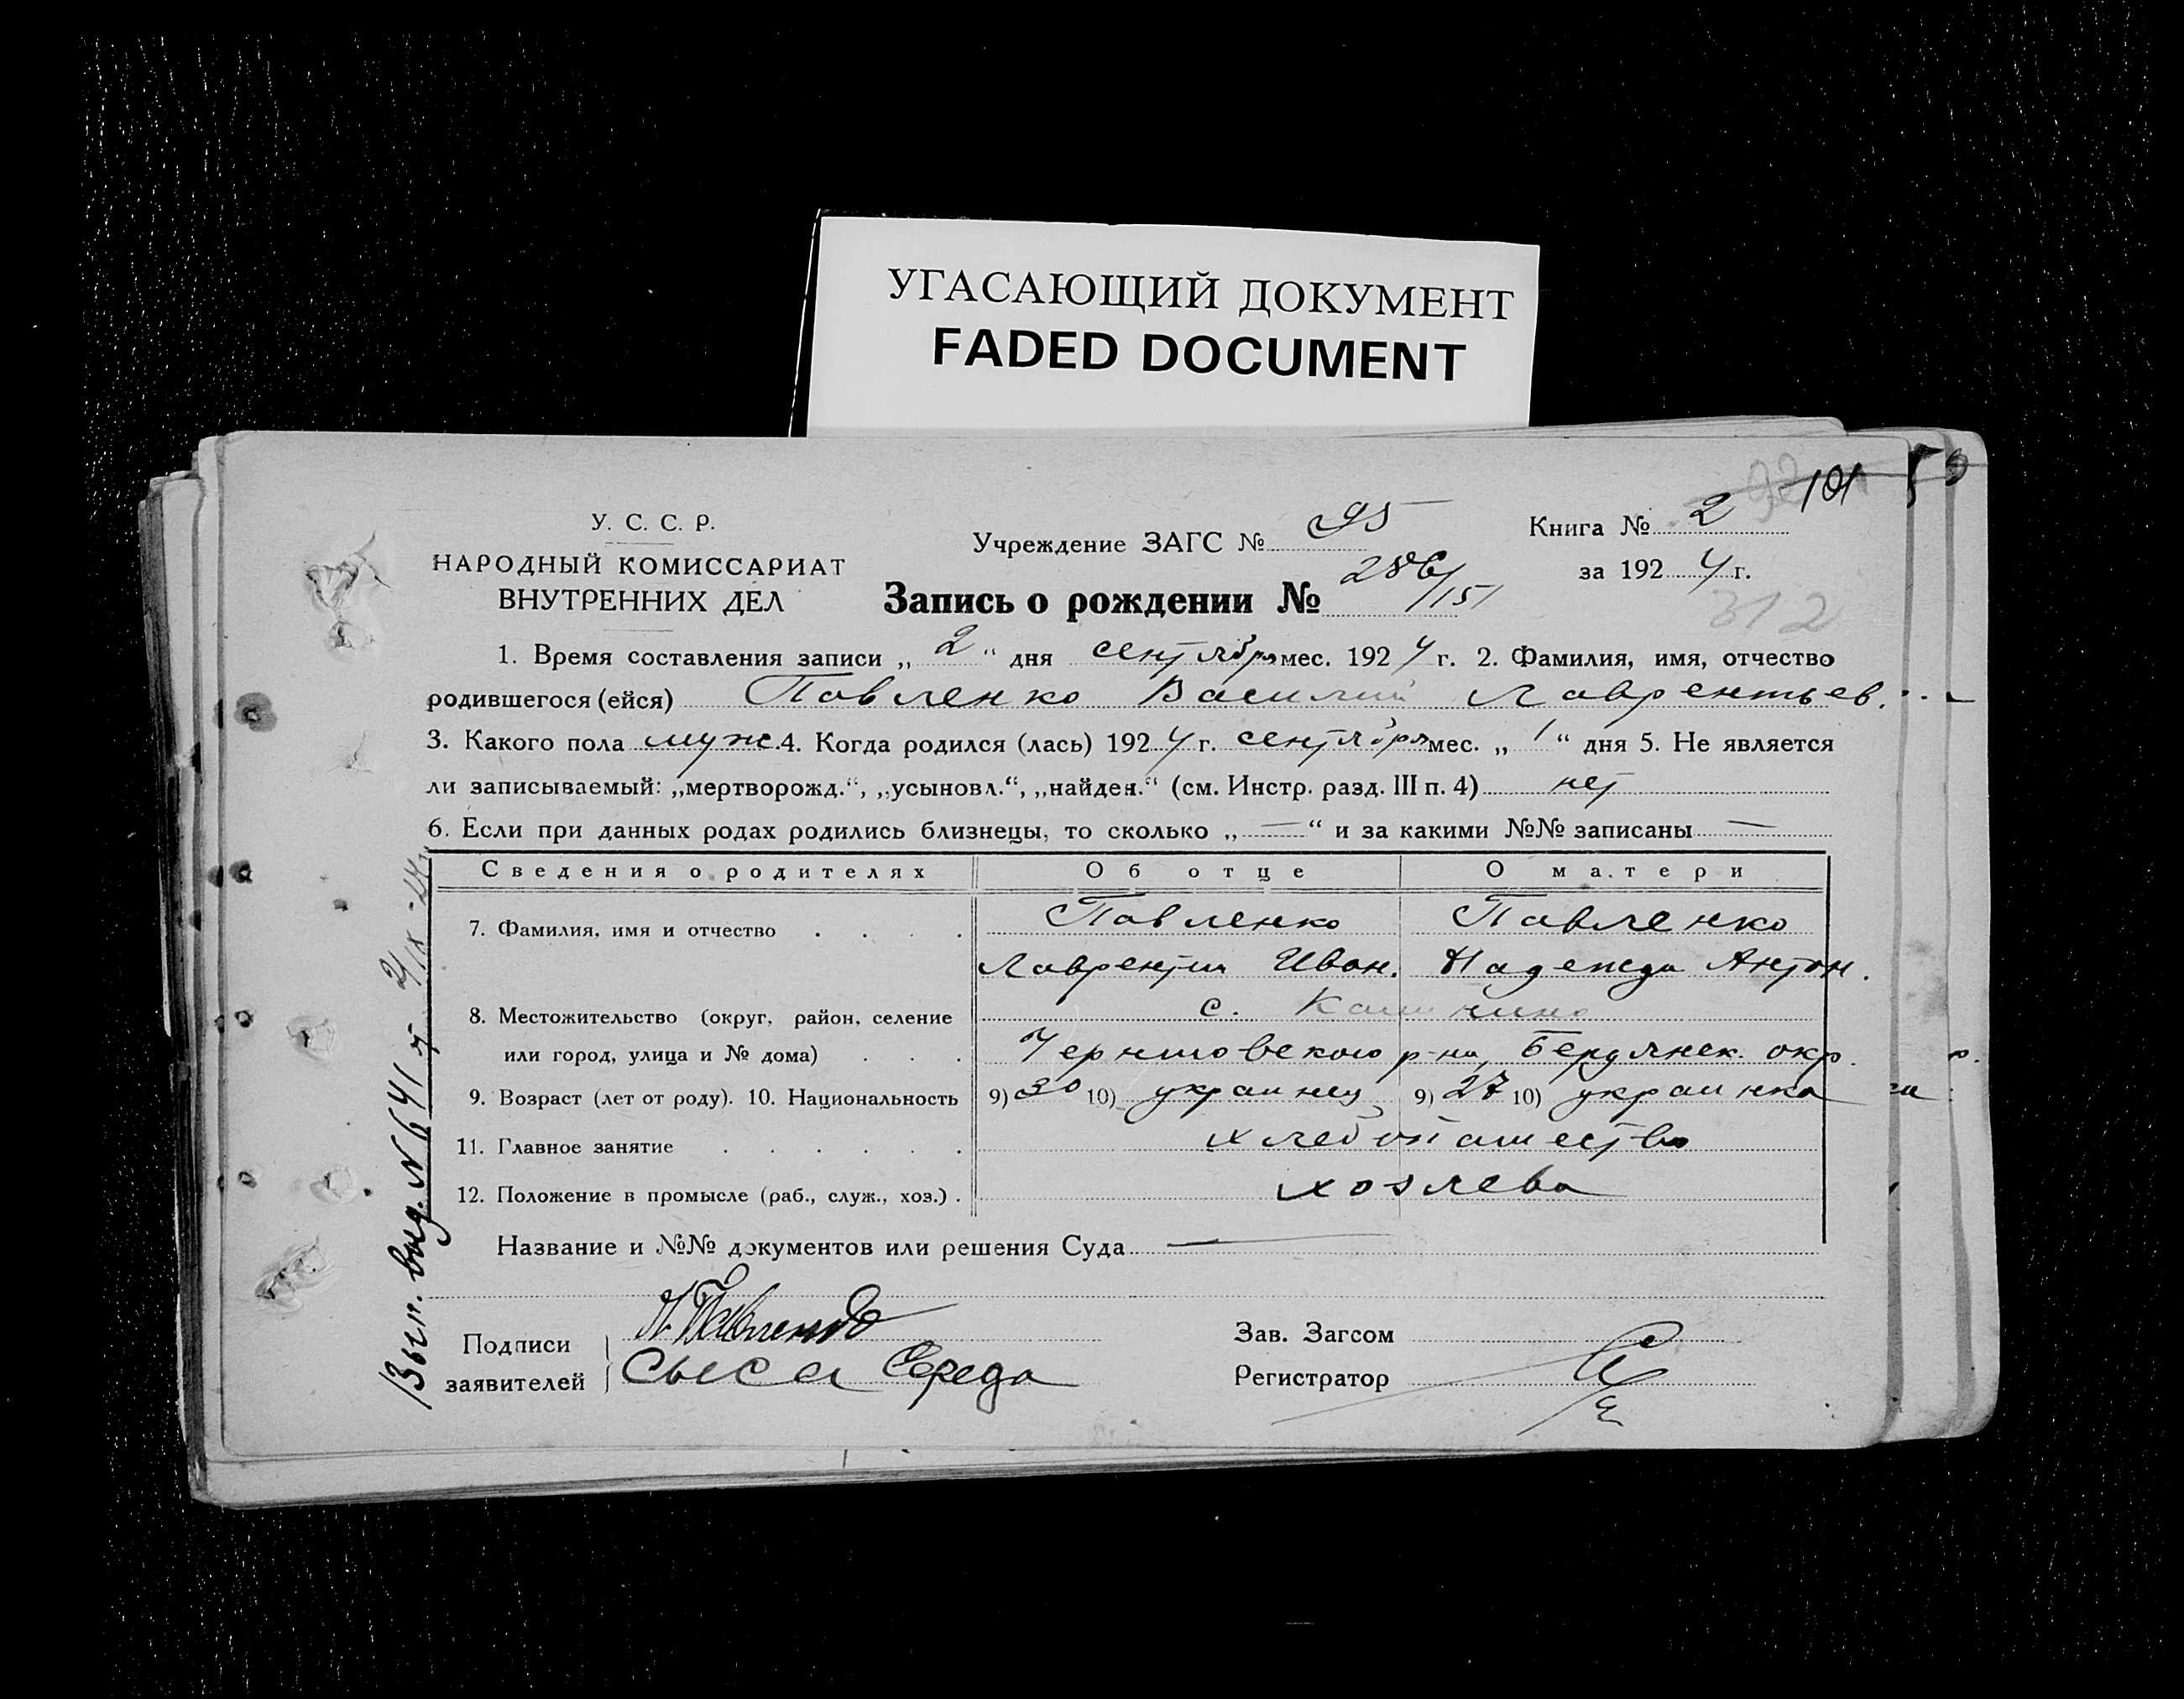 УГАСАЮЩИЙ ДОКУМЕНТ
FADED DOCUMENT
101
У. С. С. Р.
НАРОДНЫЙ КОМИССАРИАТ
ВНУТРЕННИХ ДЕЛ
Учреждение ЗАГС № 95
Книга № 2
за 1924 г.
Запись о рождении № 286/151
312
1. Время составления записи „ 2 “ дня сентября мес. 1924 г. 2. Фамилия, имя, отчество
родившегося (ейся) Павленко Василий Лаврентьев.
3. Какого пола муж. 4. Когда родился (лась) 1924 г. сентября мес. „ 1 “ дня 5. Не является
ли записываемый: „мертворожд.“, „усыновл.“, „найден.“ (см. Инстр. разд. III п. 4) нет
6. Если при данных родах родились близнецы, то сколько „ — “ и за какими №№ записаны —
Сведения о родителях Об отце О матери
7. Фамилия, имя и отчество . . . . Павленко Павленко
Лаврентий Иван. Надежда Антон.
8. Местожительство (округ, район, селение с.
или город, улица и № дома) . . . Черниговского р-на, Бердянск. окр.
9. Возраст (лет от роду). 10. Национальность 9) 30 10) украинец 9) 27 10) украинка
11. Главное занятие . . . . . . хлебопашество
12. Положение в промысле (раб., служ., хоз.) . хозяева
Название и №№ документов или решения Суда —
Подписи заявителей Л. Павленко
Середа
Зав. Загсом
Регистратор
Вып. выд. N 641